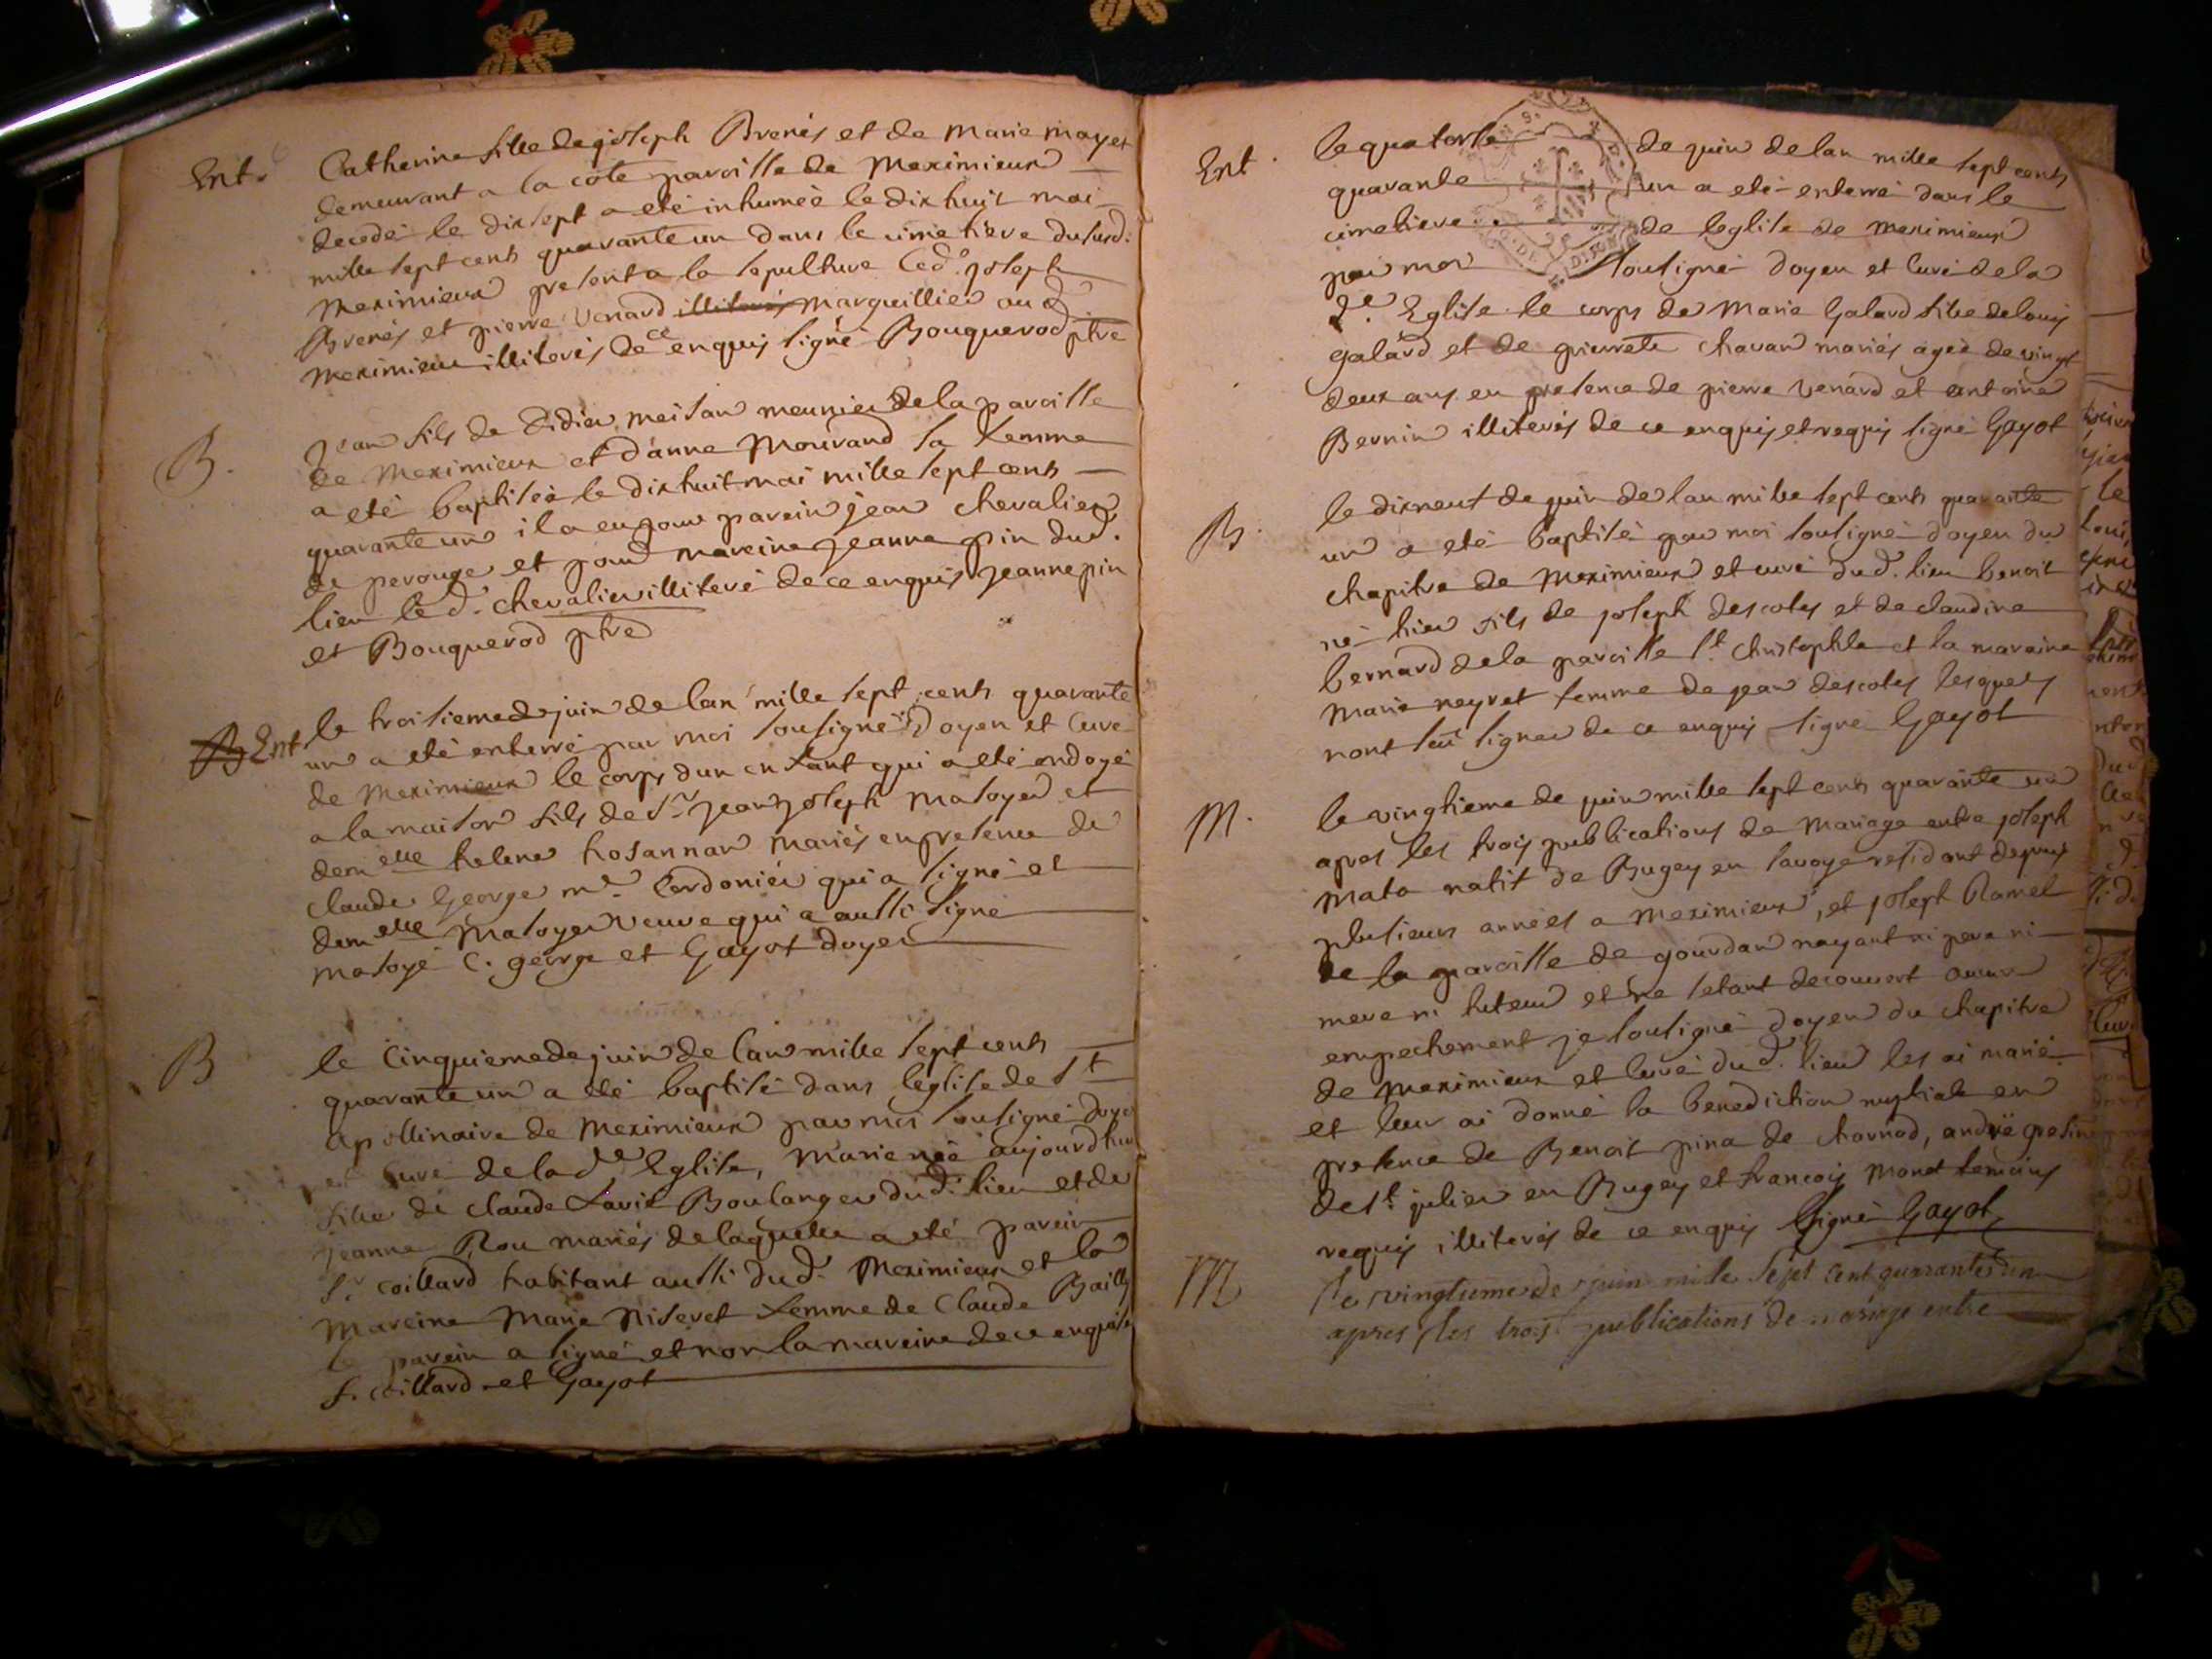 Ent.
Catherine fille de joseph Brenés et de Marie mayet
demeurant a la cote paroisse de Meximieux
decedé le dix sept a eté inhumeé le dix huit mai
mille sept cents quarante un dans le cimetiere dususd.
Meximieux present a la sepulture led. joseph
Brenés et pierre Venard illiterés marguillier aud
Meximieux illiterés de ce enquis signé Bouquerod ptre
B.
Jean fils de Didier meisan meunier de la paroisse
de Meximieux et d'anne Mourand sa femme
a eté baptiséé le dix huit mai mille sept cents
quarante un il a eu pour parein jean chevalier
de perouge et pour mareine jeanne pin dud.
lieu le d. chevalier illiteré de ce enquis jeanne pin
et Bouquerod ptre
B Ent
le troisieme de juin de lan mille sept cents quarante
un a eté enterré par moi sousigné Doyen et Curé
de Meximieux le corps dun enfant qui a eté ondoyé
a la maison fils de Sr jean joseph Masoyer et
demelle helene hosannar mariés en presence de
claude George me Cordonier qui a signé et
demelle Masoyer veuve qui a aussi signé
masoye C. george et Gayot doyen
B
le Cinquieme de juin de l'an mille sept cents
quarante un a eté baptisé dans leglise de St
apollinaire de Meximieux par moi sousigné doye
et Curé de la de Eglise, Marie neé aujourdhui
fille de claude Favie Boulanger dud. lieu et de
jeanne Rou mariés de laquelle a eté parein
Sr coillard habitant aussi dud. Meximieux et la
Mareine Marie Niseret femme de Claude Bailly
le parein a signé et non la mareine de ce enquise
f. coillard et Gayot
Ent.
le quatorse de juin de lan mille sept cents
quarante un a eté enterré dans le
cimetiere de leglise de meximieux
par moi sousigné doyen et Curé de la
de Eglise le corps de Marie Galard fille de louis
galard et de pierrete chavan mariés ageé de vingt
deux ans en presence de pierre Venard et antoine
Bernin illiterés de ce enquis et requis signé Gayot
B.
le dixneuf de juin de lan mille sept cents quarante
un a eté baptisé par moi sousigné doyen du
chapitre de Meximieux et curé dud. lieu benoit
né hier fils de joseph descotes et de claudine
bernard de la paroisse St. christophle et la maraine
Marie neyret femme de jean descotes lesquels
nont seu signer de ce enquis signé Gayot
M.
le vingtieme de juin mille sept cents quarante un
apres les trois publications de Mariage entre joseph
Mata natif de Bugey en savoye residant depuis
plusieurs annéés a Meximieux, et joseph Ramel
de la paroisse de gourdan nayant ni pere ni
mere ni tuteur et ne setant decouvert aucun
empechement je sousigné doyen du chapitre
de Meximieux et Curé dud. lieu les ai marié
et leur ai donné la benediction nuptiale en
presence de Benoit pina de charnod, andré
de St. julien en Bugey et francois Monet temoins
requis illiterés de ce enquis signé Gayot
M
le vingtieme de juin mille sept cent quarante un
apres les trois publications de mariage entre